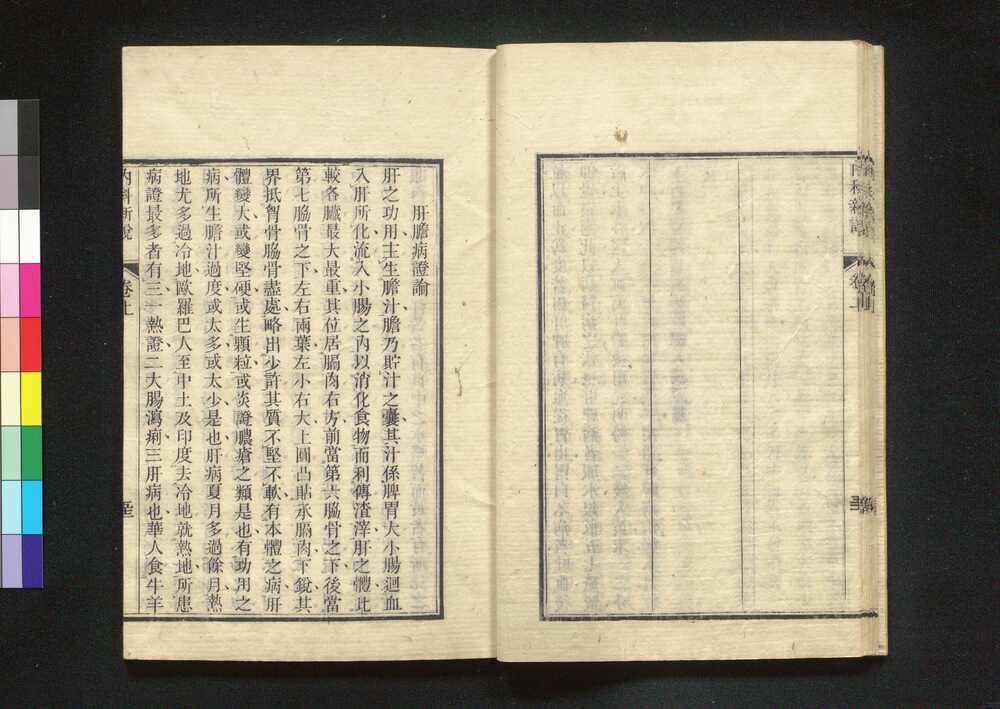 肝膽病證論
肝之功用主生膽汁膽乃貯汁之囊其汁係脾胃大小腸迴血
入肝所化流入小腸之內以消化食物而利傳渣滓肝之體比
較各臟最大最重其位居膈肉右方前當第六脇骨之下後當
第七脇骨之下左右兩葉左小右大上圓凸貼承膈肉下銳其
界抵胷骨脇骨盡處略出少許其質不堅不軟有本體之病肝
體變大或變堅硬或生顆粒或炎證膿瘡之類是也有功用之
病所生膽汁過度或太多或太少是也肝病夏月多過餘月熱
地尤多過冷地歐羅巴人至中土及印度去冷地就熱地所患
病證最多者有三一熱證二大腸瀉痢三肝病也華人食牛羊
內科新說
卷上